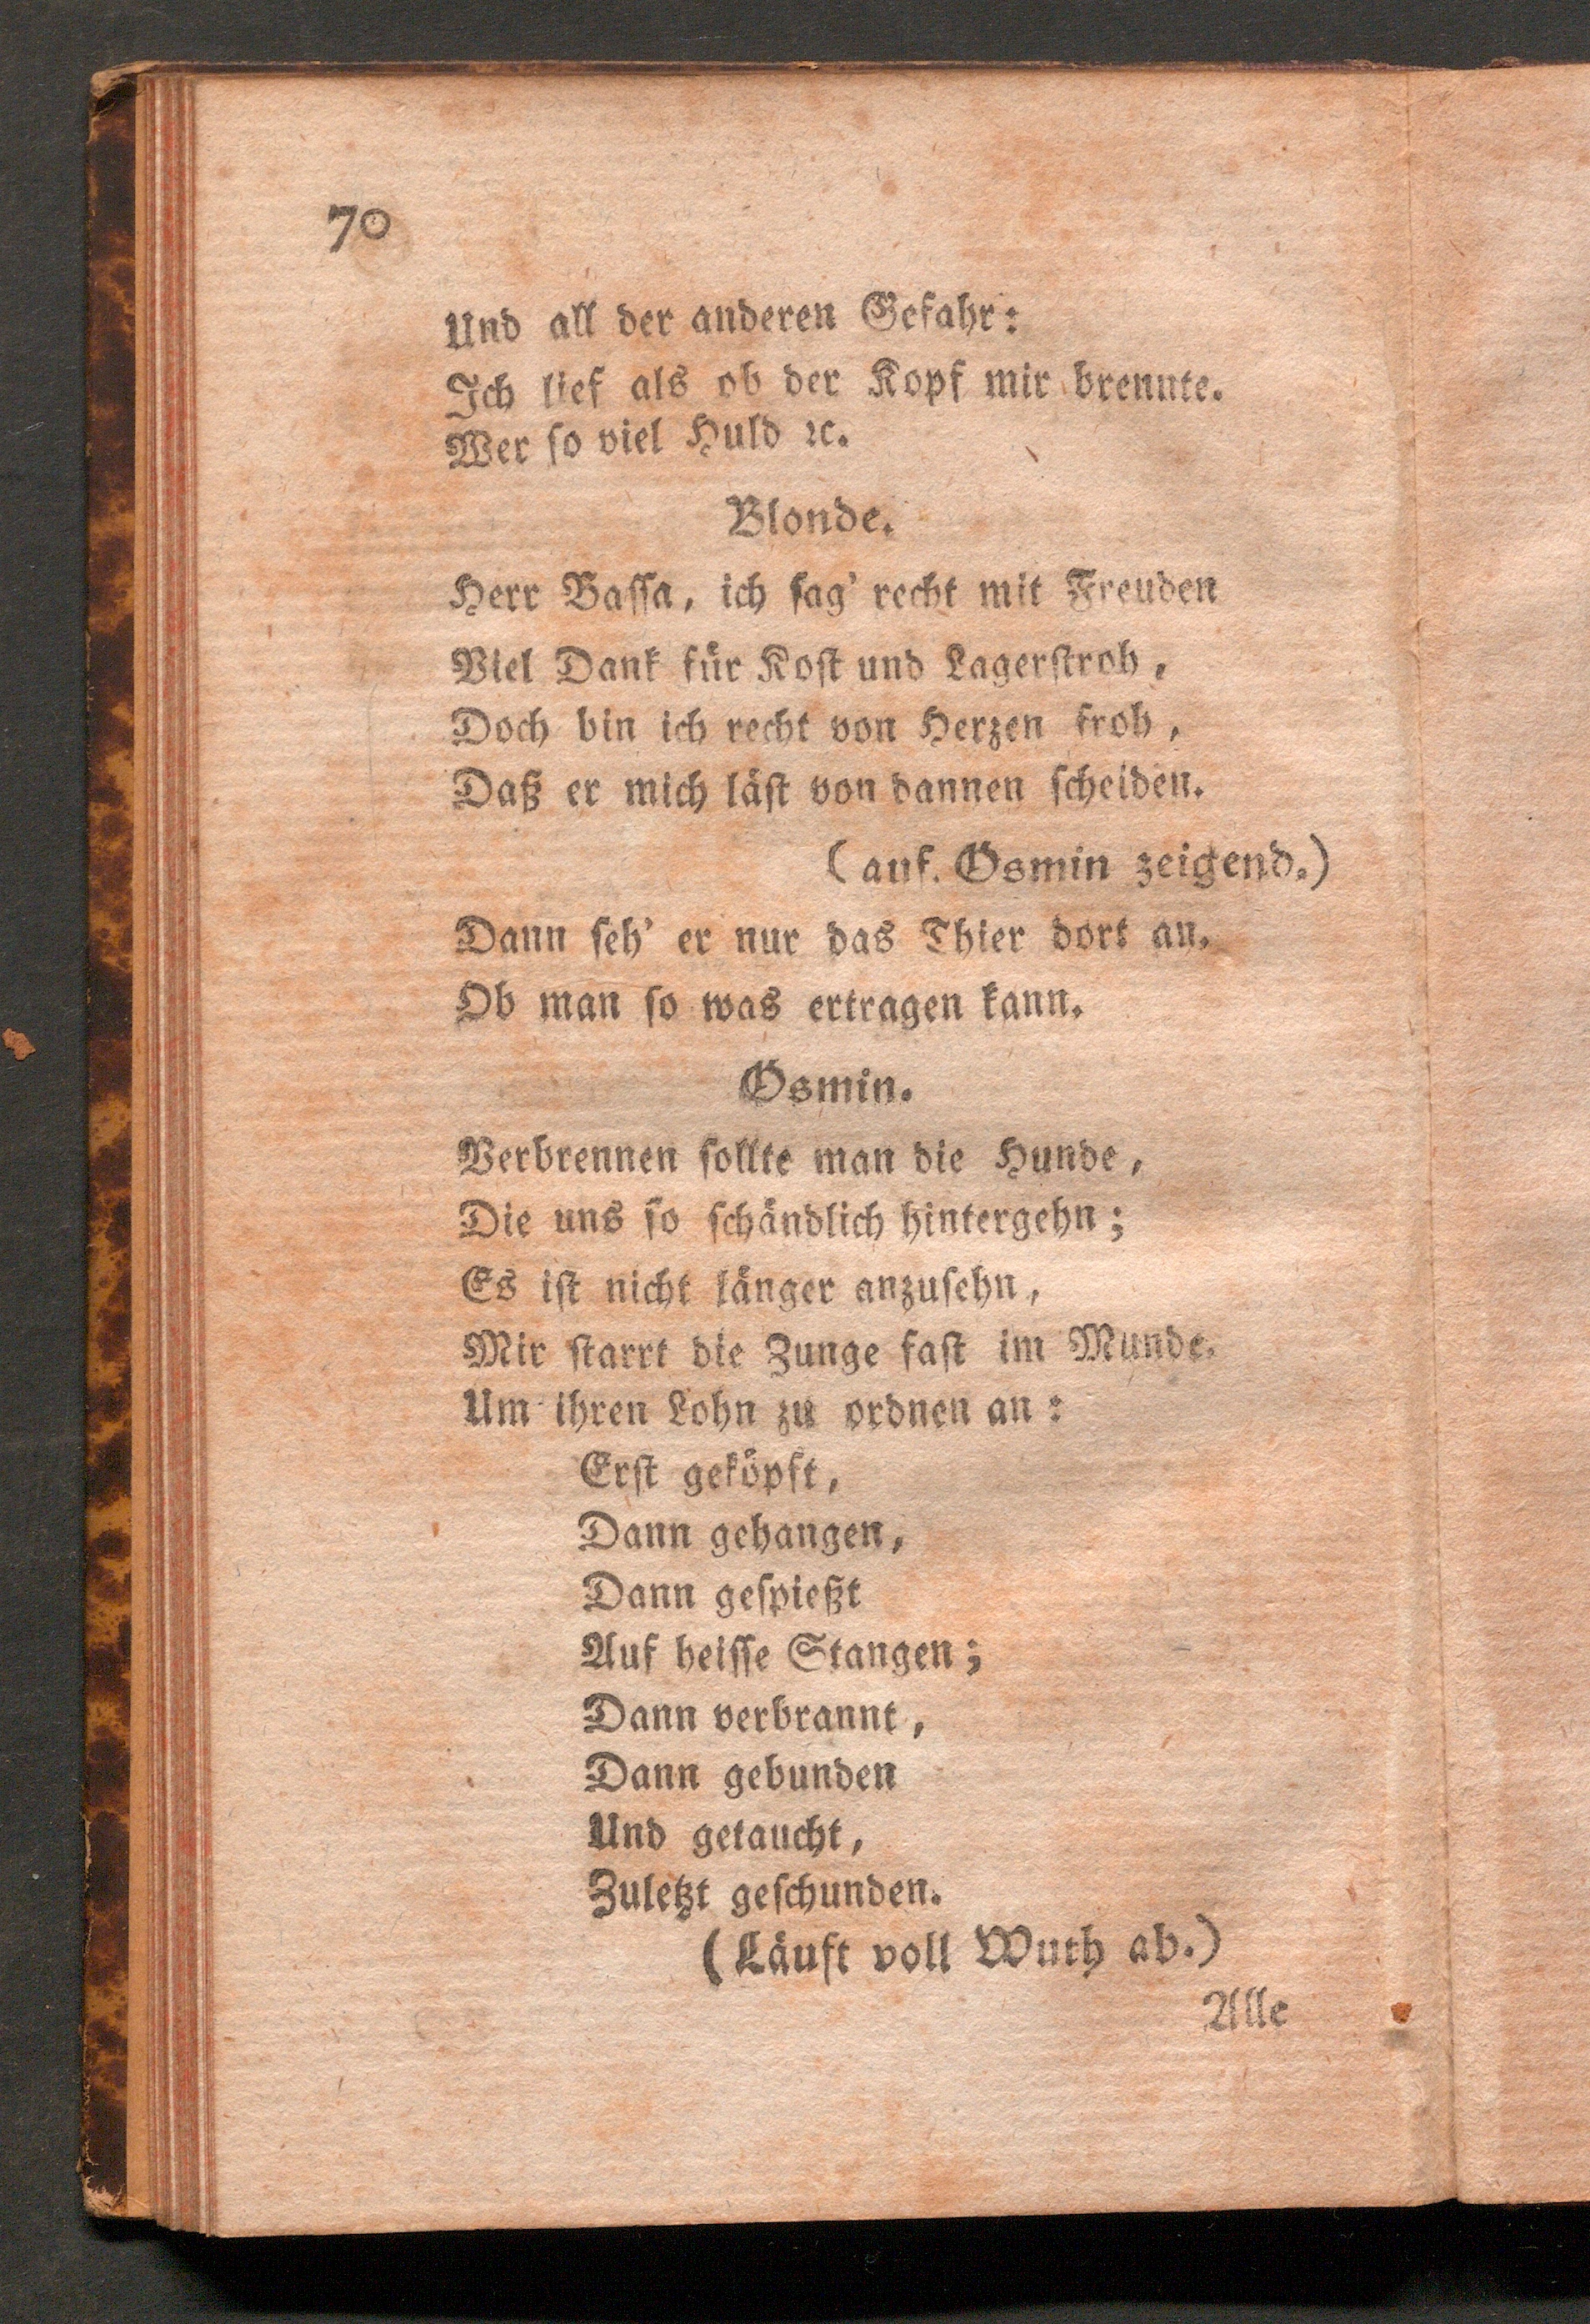 70
Und all der anderen Gefahr:
Ich lief als ob der Kopf mir brennte.
Wer so viel Huld ꝛc.
Blonde.
Herr Bassa, ich sag' recht mit Freuden
Viel Dank für Kost und Lagerstroh,
Doch bin ich recht von Herzen froh,
Daß er mich läst von dannen scheiden.
(auf Osmin zeigend.)
Dann seh' er nur das Thier dort an,
Ob man so was ertragen kann.
Osmin.
Verbrennen sollte man die Hunde,
Die uns so schändlich hintergehn;
Es ist nicht länger anzusehn,
Mir starrt die Zunge fast im Munde,
Um ihren Lohn zu ordnen an:
Erst geköpft,
Dann gehangen,
Dann gespießt
Auf heisse Stangen;
Dann verbrannt,
Dann gebunden
Und getaucht,
Zuletzt geschunden.
(Läuft voll Wuth ab.)
Alle